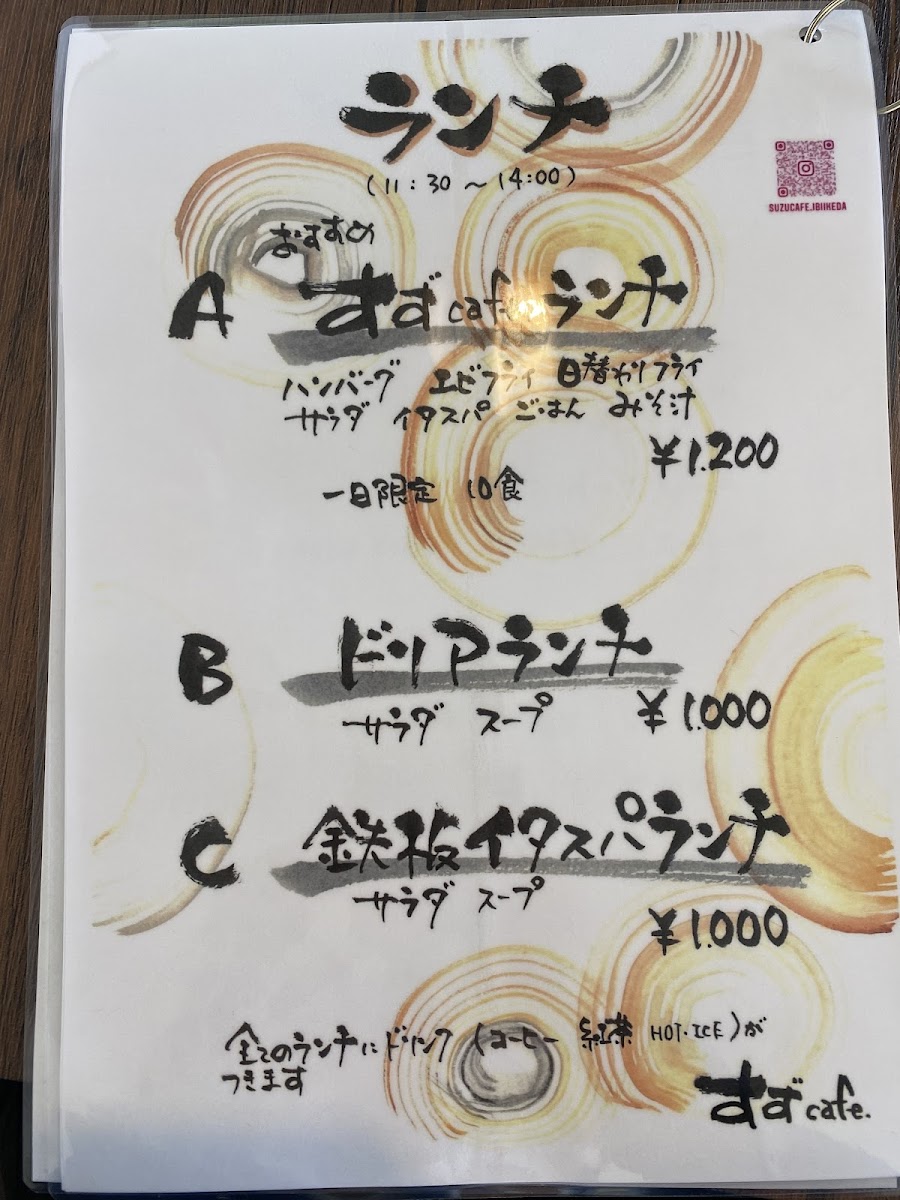 ランチ
(11:30～14:00)
SUZUCAFE.IBIIKEDA
おすすめ
A すず cafe ランチ
ハンバーグ エビフライ 日替わりフライ
サラダ イタスパ ごはん みそ汁
¥1.200
一日限定 10食
B ドリアランチ
サラダ スープ ¥1.000
C 鉄板イタスパランチ
サラダ スープ
¥1.000
全てのランチにドリンク (コーヒー 紅茶 HOT・ICE)が
つきます
すず cafe.